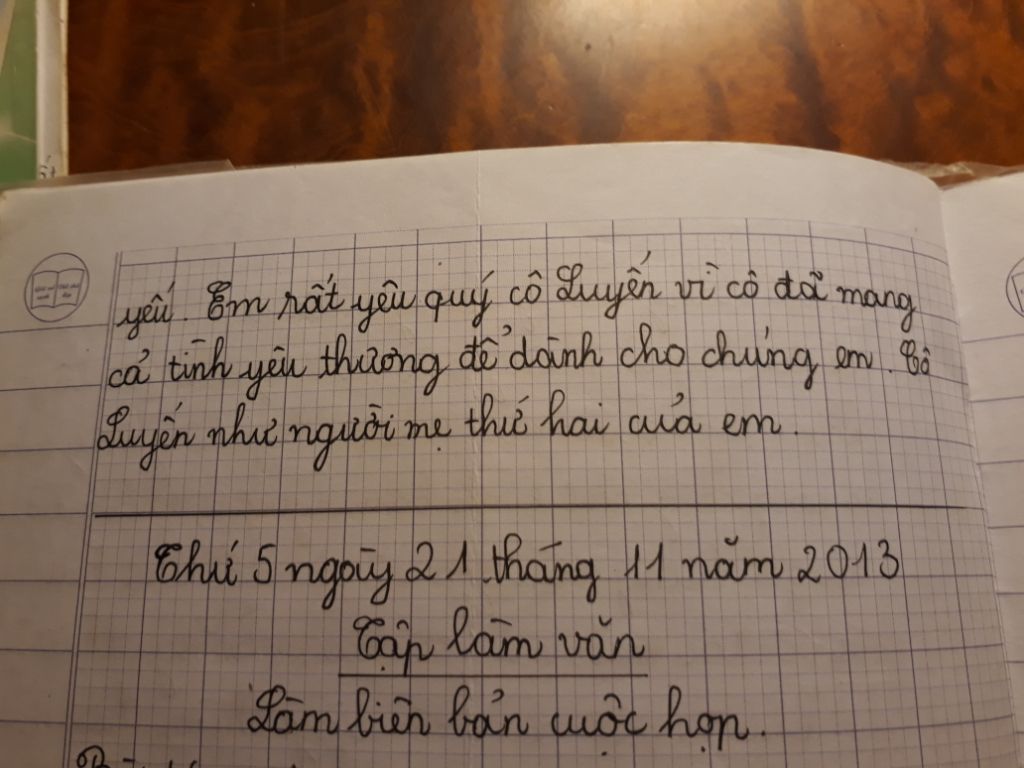 yếu. Em rất yêu quý cô Luyến vì cô đã mang
cả tình yêu thương để dành cho chúng em. Cô
Luyến như người mẹ thứ hai của em.
Thứ 5 ngày 21 tháng 11 năm 2013
Tập làm văn
Làm biên bản cuộc họp.